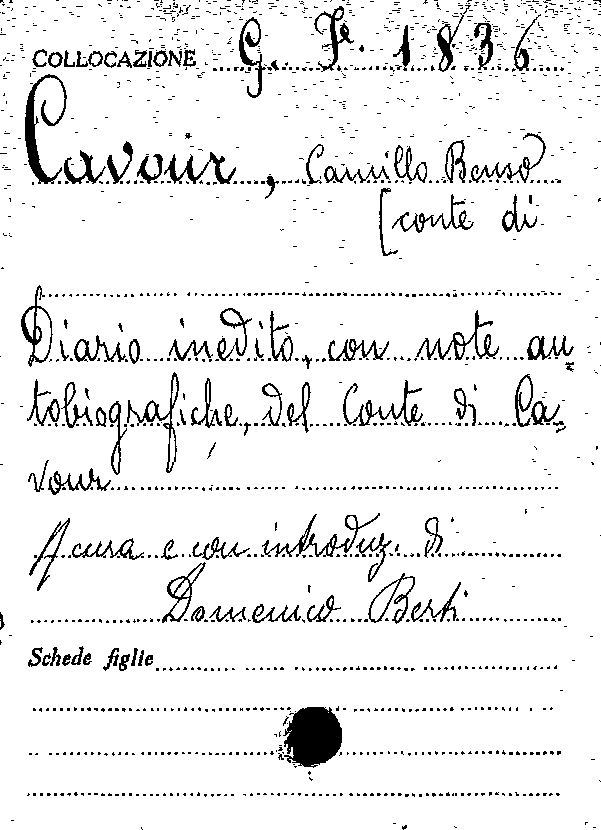 COLLOCAZIONE G. Fe. 1836
Cavour, Camillo Benso
[conte di
Diario inedito, con note au=
tobiografiche, del Conte di Ca=
vour
A cura e con introduz. di
Domenico Berti
Schede figlie